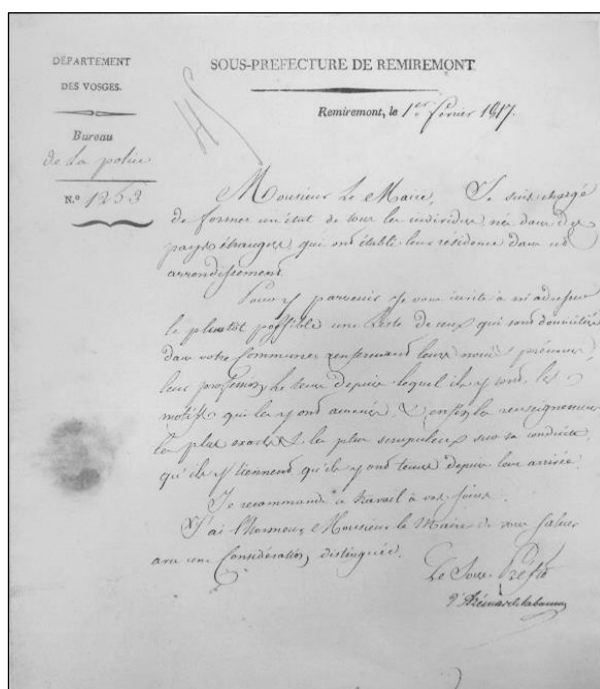 DÉPARTEMENT
DES VOSGES.
Bureau
de la police
N.º 1253
SOUS-PREFECTURE DE REMIREMONT
Remiremont, le 1er février 1817.
Monsieur Le Maire, Je suis chargé
de former un état de tous les individus, nés dans des
pays étrangers, qui ont établi leur résidence dans cet
arrondissement.
Pour y parvenir Je vous invite à m'adresser
le plustôt possible une Liste de ceux qui sont domiciliés
dans votre Commune renfermant leurs noms, prénoms,
leur profession, Le tems depuis lequel ils y sont, les
motifs qui les y ont amenés, & enfin les renseignemens
les plus exacts & les plus scrupuleux sur la conduite
qu'ils y tiennent, qu'ils y ont tenue depuis leur arrivée.
Je recommande ce travail à vos soins.
J'ai l'honneur, Monsieur le Maire de vous saluer
avec une Considération distinguée.
Le Sous Préfet